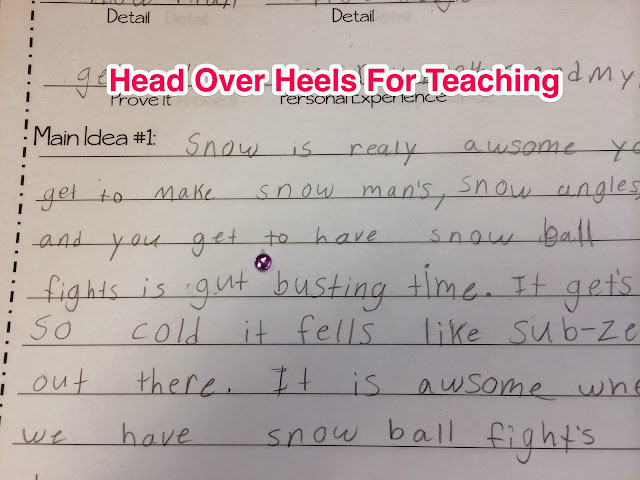 Detail Detail
Head Over Heels For Teaching
Prove It Personal Experience
Main Idea #1: Snow is realy awsome
get to make snow man's, snow angles,
and you get to have snow ball
fights is gut busting time. It get's
So cold it fells like sub-ze
out there. It is awsome whe
we have snow ball fight's